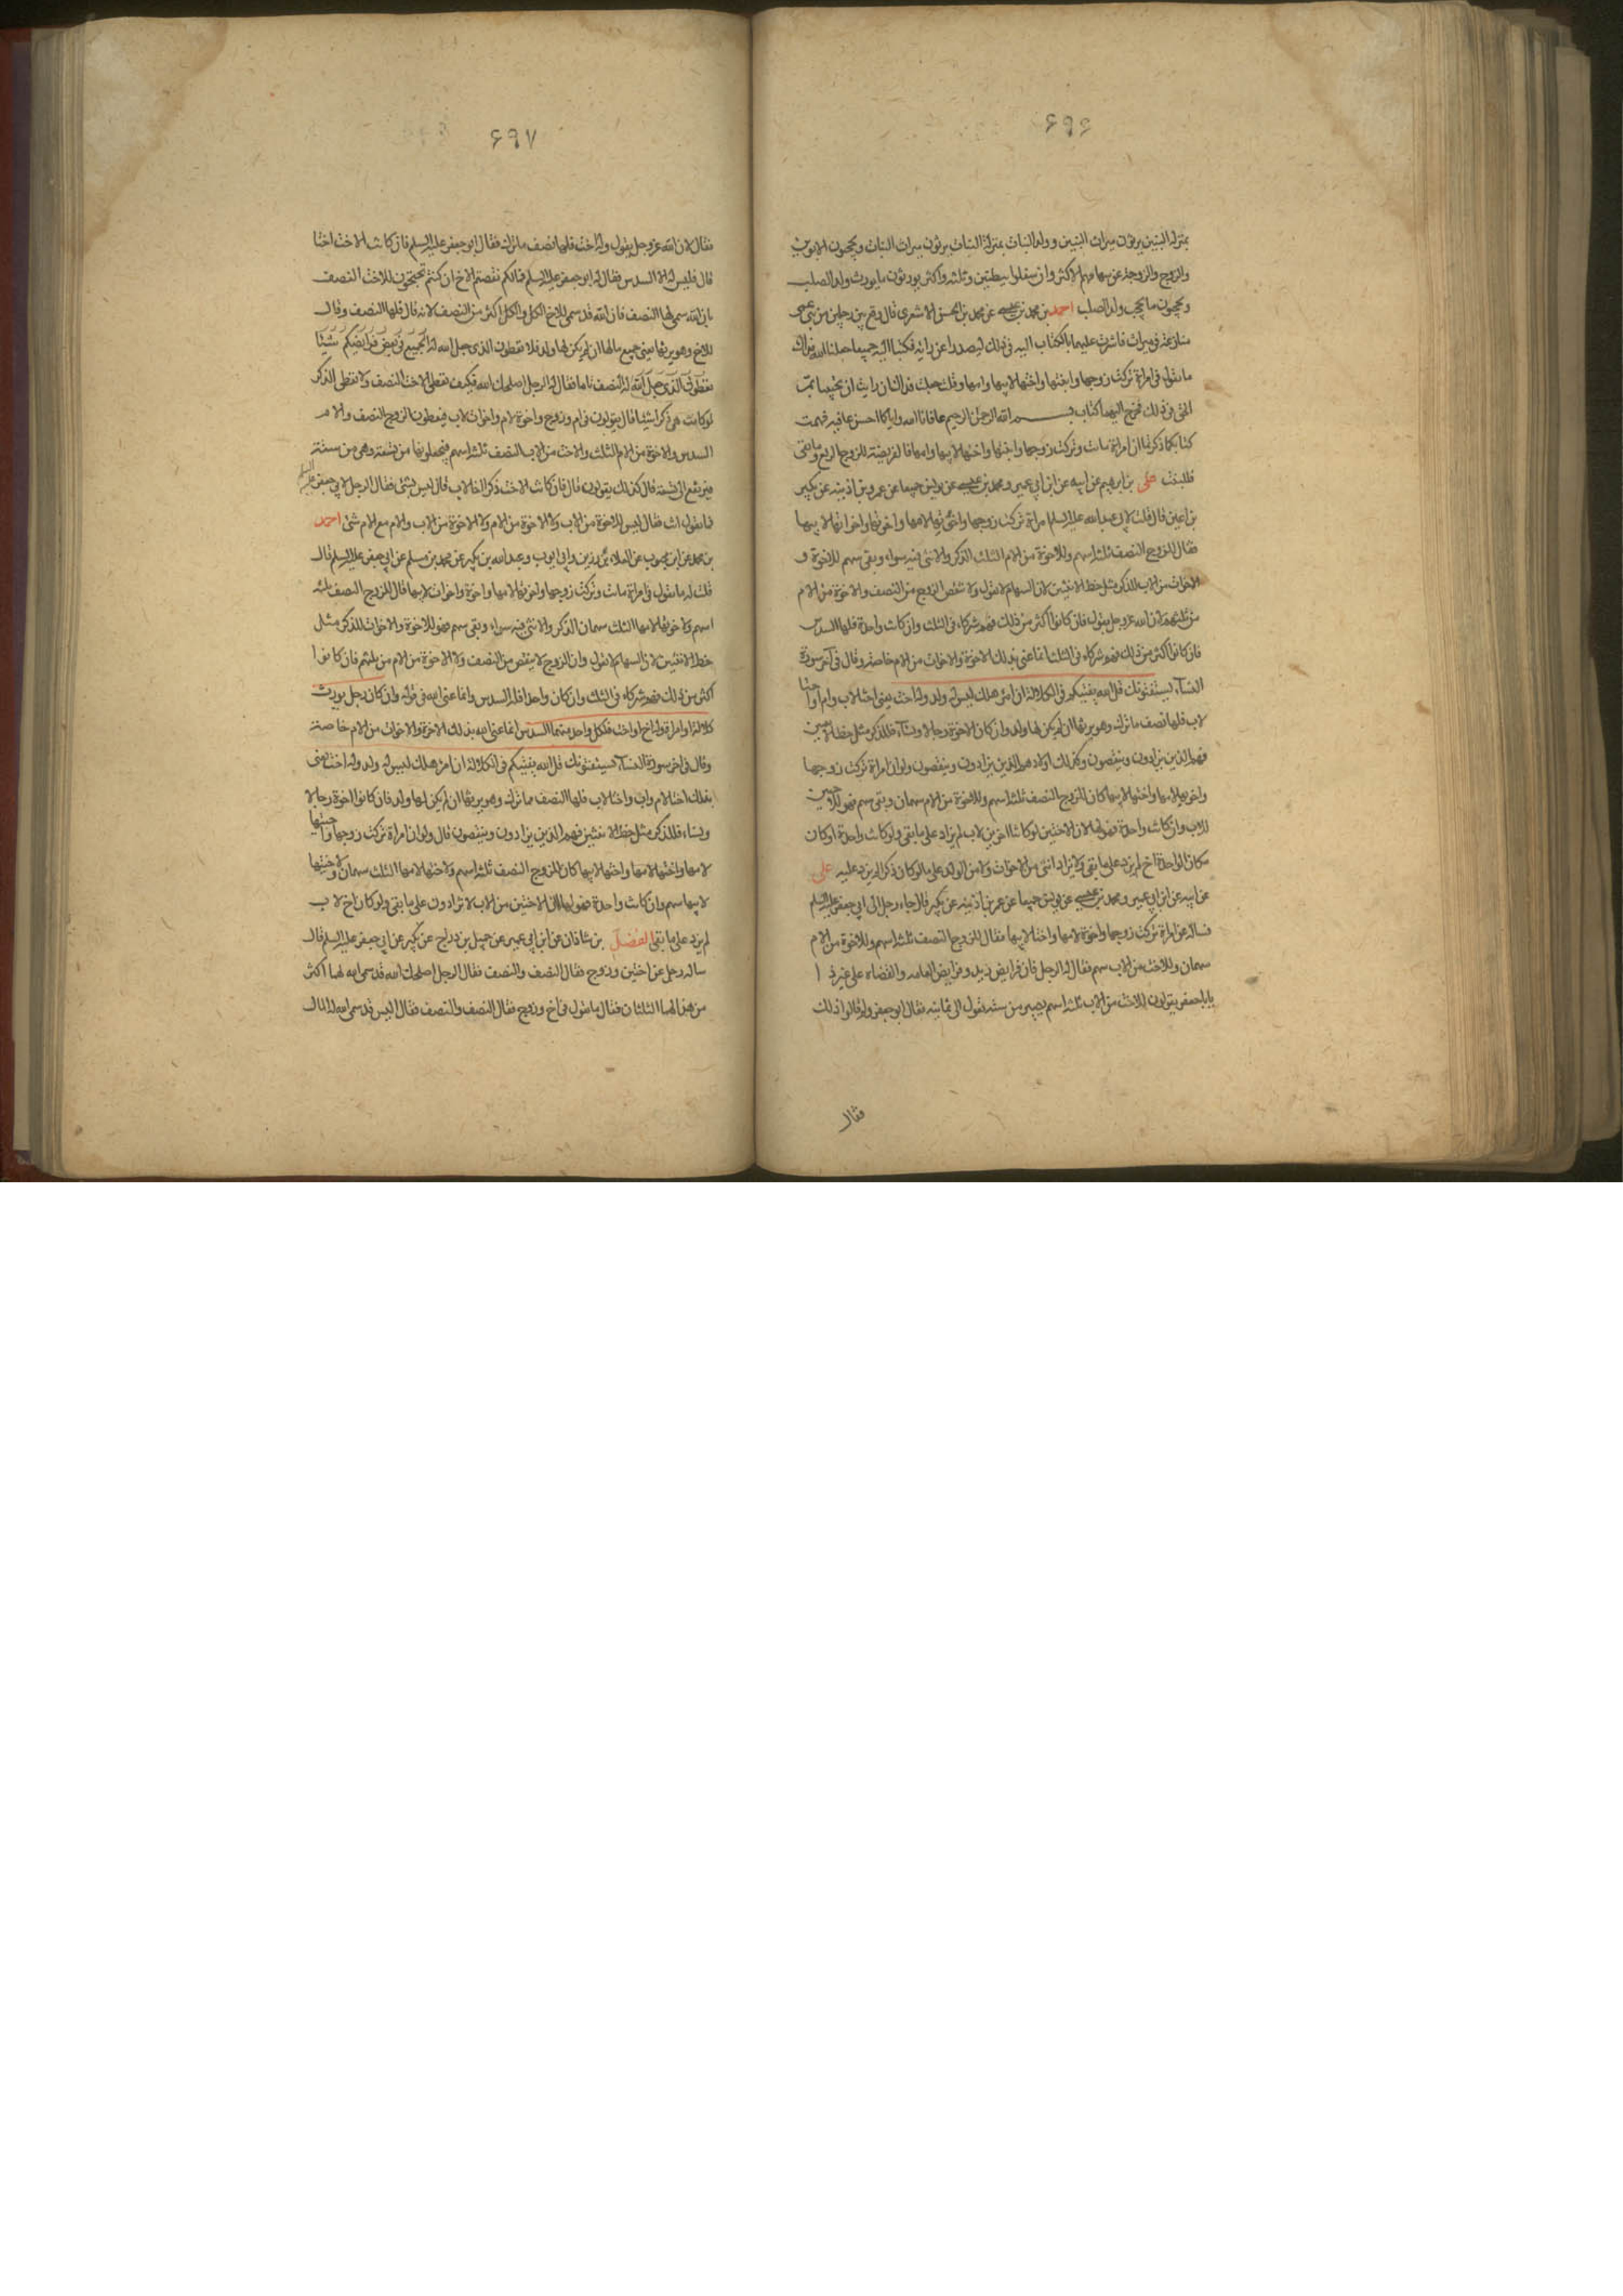 ۶۹۶
بمنزلة البنين يرثون ميراث البنين وولد البنات بمنزلة البنات يرثون ميراث البنات ويحجبون الابوين
والزوج والزوجة عن سهامهم الاكثر وان سفلوا ببطنين وثلثة واكثر يورثون ما يورث ولد الصلب
ويحجبون ما يحجب ولد الصلب احمد بن محمد بن عيسى عن محمد بن الحسن الاشعرى قال وقع بين رجلين من بنى عمى
منازعة فى ميراث فاشرت عليهما بالكتاب اليه فى ذلك ليصدرا عن رايه فكتبا اليه جميعا جعلنا الله فداك
ما تقول فى امراة تركت زوجها وابنتها واختها لابيها وامها وقلت جعلت فداك ان رايت ان تجيبنا بمر
الحق فى ذلك فخرج اليهما كتاب بسم الله الرحمن الرحيم عافانا الله واياكما احسن عافية فهمت
كتابكما ذكرتما ان امراة ماتت وتركت زوجها وابنتها واختها لابيها وامها فالفريضة للزوج الربع وما بقى
فللبنت على بن ابرهيم عن ابيه عن ابن ابى عمير ومحمد بن عيسى عن يونس جميعا عن عمر بن اذينه عن بكير
بن اعين قال قلت لابى عبد الله عليه السلم امراة تركت زوجها واخوتها لامها واخوتها واخواتها لابيها
فقال للزوج النصف ثلثة اسهم وللاخوة من الام الثلث الذكر والانثى فيه سواء وبقى سهم للاخوة و
الاخوات من الاب للذكر مثل حظ الانثيين لان السهام لا تعول ولا تنقص الزوج من النصف والاخوة من الام
من ثلثهم لان الله عز وجل يقول فان كانوا اكثر من ذلك فهم شركاء فى الثلث وان كانت واحدة فلها السدس
فان كانوا اكثر من ذلك فهم شركاء فى الثلث انما عنى بذلك الاخوة والاخوات من الام خاصة وقال فى آخر سورة
النسآء يستفتونك قل الله يفتيكم فى الكلالة ان امرؤ هلك ليس له ولد وله اخت يعنى اختا لاب وام او اختا
لاب فلها نصف ما ترك وهو يرثها ان لم يكن لها ولد وان كان الاخوة رجالا ونسآء فللذكر مثل حظ الانثيين
فهم الذين يزادون وينقصون وكذلك اولادهم الذين يزادون وينقصون ولو ان امراة تركت زوجها
واخوتها لامها واختيها لابيها كان للزوج النصف ثلثة اسهم وللاخوة من الام سهمان وبقى سهم فهو للاختين
للاب وان كانت واحدة فهو لها لان الاختين لو كانتا اخوين لاب لم يزادا على ما بقى ولو كانت واحدة او كان
مكان الواحدة اخ لم يزد على ما بقى ولا يزاد انثى من الاخوات ولا من الولد على ما لو كان ذكرا لم يزد عليه على
عن ابيه عن ابن ابى عمير ومحمد بن عيسى عن يونس جميعا عن عمر بن اذينه عن بكير قال جاء رجل الى ابى جعفر عليه السلم
فساله عن امراة تركت زوجها واخوة لامها واختا لابيها فقال للزوج النصف ثلثة اسهم وللاخوة من الام
سهمان وللاخت من الاب سهم فقال له الرجل فان فرايض زيد وفرايض العامه والقضاء على غير ذا
يا باجعفر يقولون للاخت من الاب ثلثة اسهم يصير من ستة تعول الى ثمانيه فقال ابو جعفر ولم قالوا ذلك
فقال
۶۹۷
فقال لان الله عز وجل يقول وله اخت فلها نصف ما ترك فقال ابو جعفر عليه السلم فان كانت الاخت اخا
قال فليس له الا السدس فقال له ابو جعفر عليه السلم فما لكم نقصتم الاخ ان كنتم تحتجون للاخت النصف
بان الله سمى لها النصف فان الله قد سمى للاخ الكل والكل اكثر من النصف لانه قال فلها النصف وقال
للاخ وهو يرثها يعنى جميع مالها ان لم يكن لها ولد فلا تعطون الذى جعل الله له الجميع فى بعض فرايضكم شيئا
وتعطون الذى جعل الله له النصف تاما فقال له الرجل اصلحك الله فكيف نعطى الاخت النصف ولا نعطى الذكر
لو كانت هى ذكرا شيئا قال يقولون فى ام وزوج واخوة لام واخوات لاب فيعطون الزوج النصف والام
السدس والاخوة من الام الثلث والاخت من الاب النصف ثلثة اسهم فيجعلونها من تسعة وهى من ستة
فترتفع الى تسعة قال كذلك يقولون قال فان كانت الاخت ذكرا اخا لاب قال ليس له شئ فقال الرجل لابى جعفر عليه السلم
فما تقول انت فقال ليس للاخوة من الاب والام ولا الاخوة من الام ولا الاخوة من الاب مع الام شئ احمد
بن محمد عن ابن محبوب عن العلاء بن رزين وابى ايوب وعبد الله بن بكير عن محمد بن مسلم عن ابى جعفر عليه السلم قال
قلت له ما تقول فى امراة ماتت وتركت زوجها واخوتها لامها واخوة واخوات لابيها قال للزوج النصف ثلثة
اسهم ولاخوتها لامها الثلث سهمان الذكر والانثى فيه سواء وبقى سهم فهو للاخوة والاخوات للذكر مثل
حظ الانثيين لان السهام لا تعول وان الزوج لا ينقص من النصف ولا الاخوة من الام من ثلثهم فان كانوا
اكثر من ذلك فهم شركاء فى الثلث وان كان واحدا فله السدس وانما عنى الله فى قوله وان كان رجل يورث
كلالة او امراة وله اخ او اخت فلكل واحد منهما السدس انما عنى الله بذلك الاخوة والاخوات من الام خاصة
وقال فى اخر سورة النسآء يستفتونك قل الله يفتيكم فى الكلالة ان امرؤ هلك ليس له ولد وله اخت يعنى
بذلك اختا لام واب واختا لاب فلها النصف مما ترك وهو يرثها ان لم يكن لها ولد فان كانوا اخوة رجالا
ونساء فللذكر مثل حظ الانثيين فهم الذين يزادون وينقصون قال ولو ان امراة تركت زوجها واختيها
لامها واختها لامها واختها لابيها كان للزوج النصف ثلثة اسهم ولاختها لامها الثلث سهمان ولاختها
لابيها سهم وان كانت واحدة فهو لها لان الاختين من الاب لا تزادون على ما بقى ولو كان اخ لاب
لم يزد على ما بقى الفضل بن شاذان عن ابن ابى عمير عن جميل بن دراج عن بكير عن ابى جعفر عليه السلم قال
ساله رجل عن اختين وزوج فقال النصف والنصف فقال الرجل اصلحك الله قد سمى الله لهما اكثر
من هذا لهما الثلثان فقال ما تقول فى اخ وزوج فقال النصف والنصف فقال اليس قد سمى الله له المال